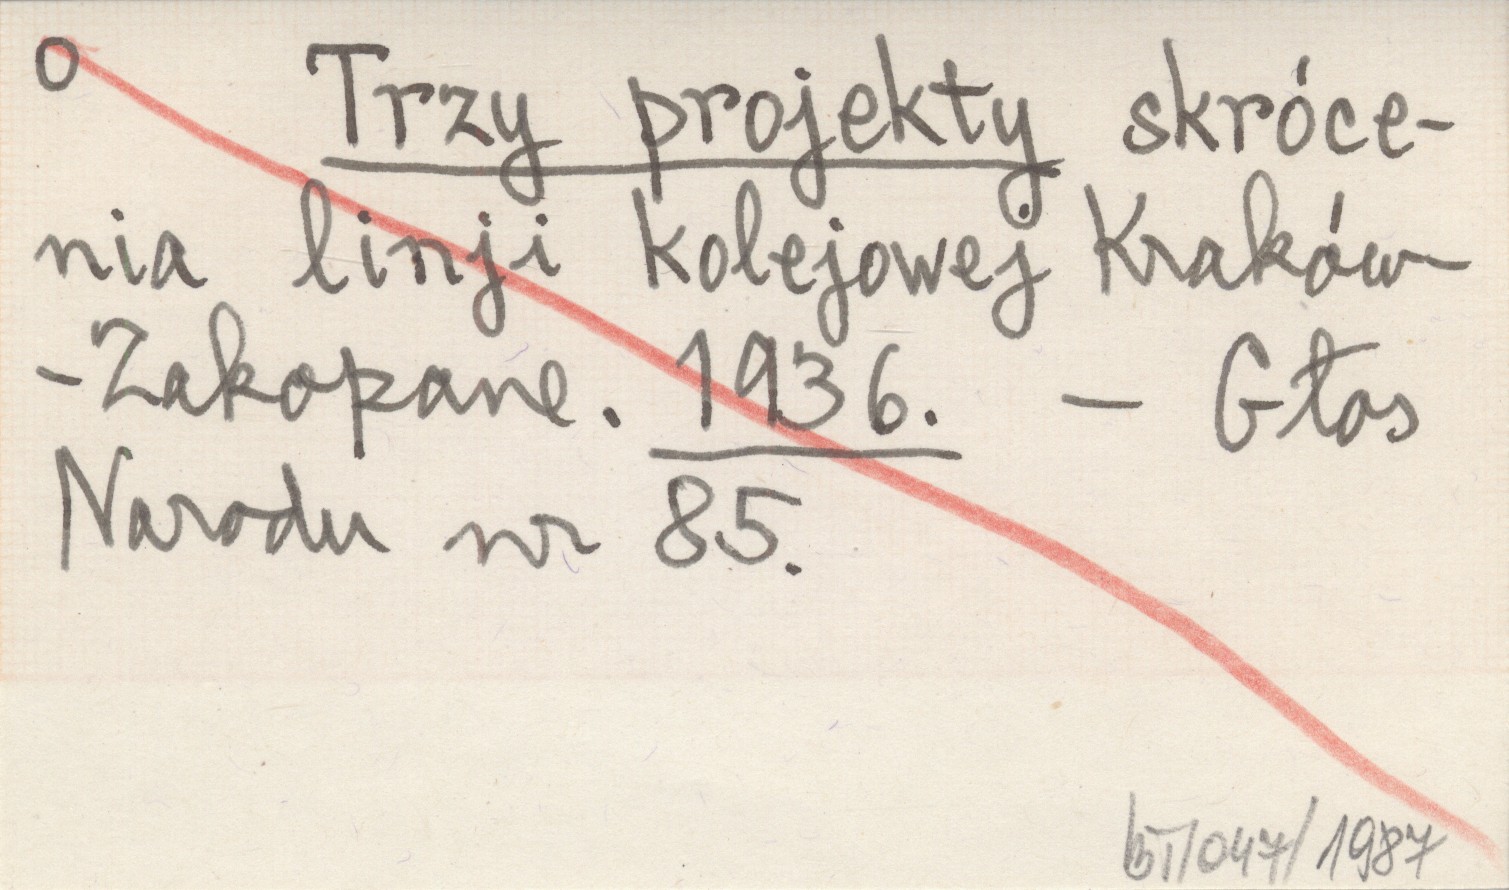 o Trzy projekty skróce-
nia linji kolejowej Kraków-
-Zakopane. 1936. – Głos
Narodu nr 85.
BT/047/1987